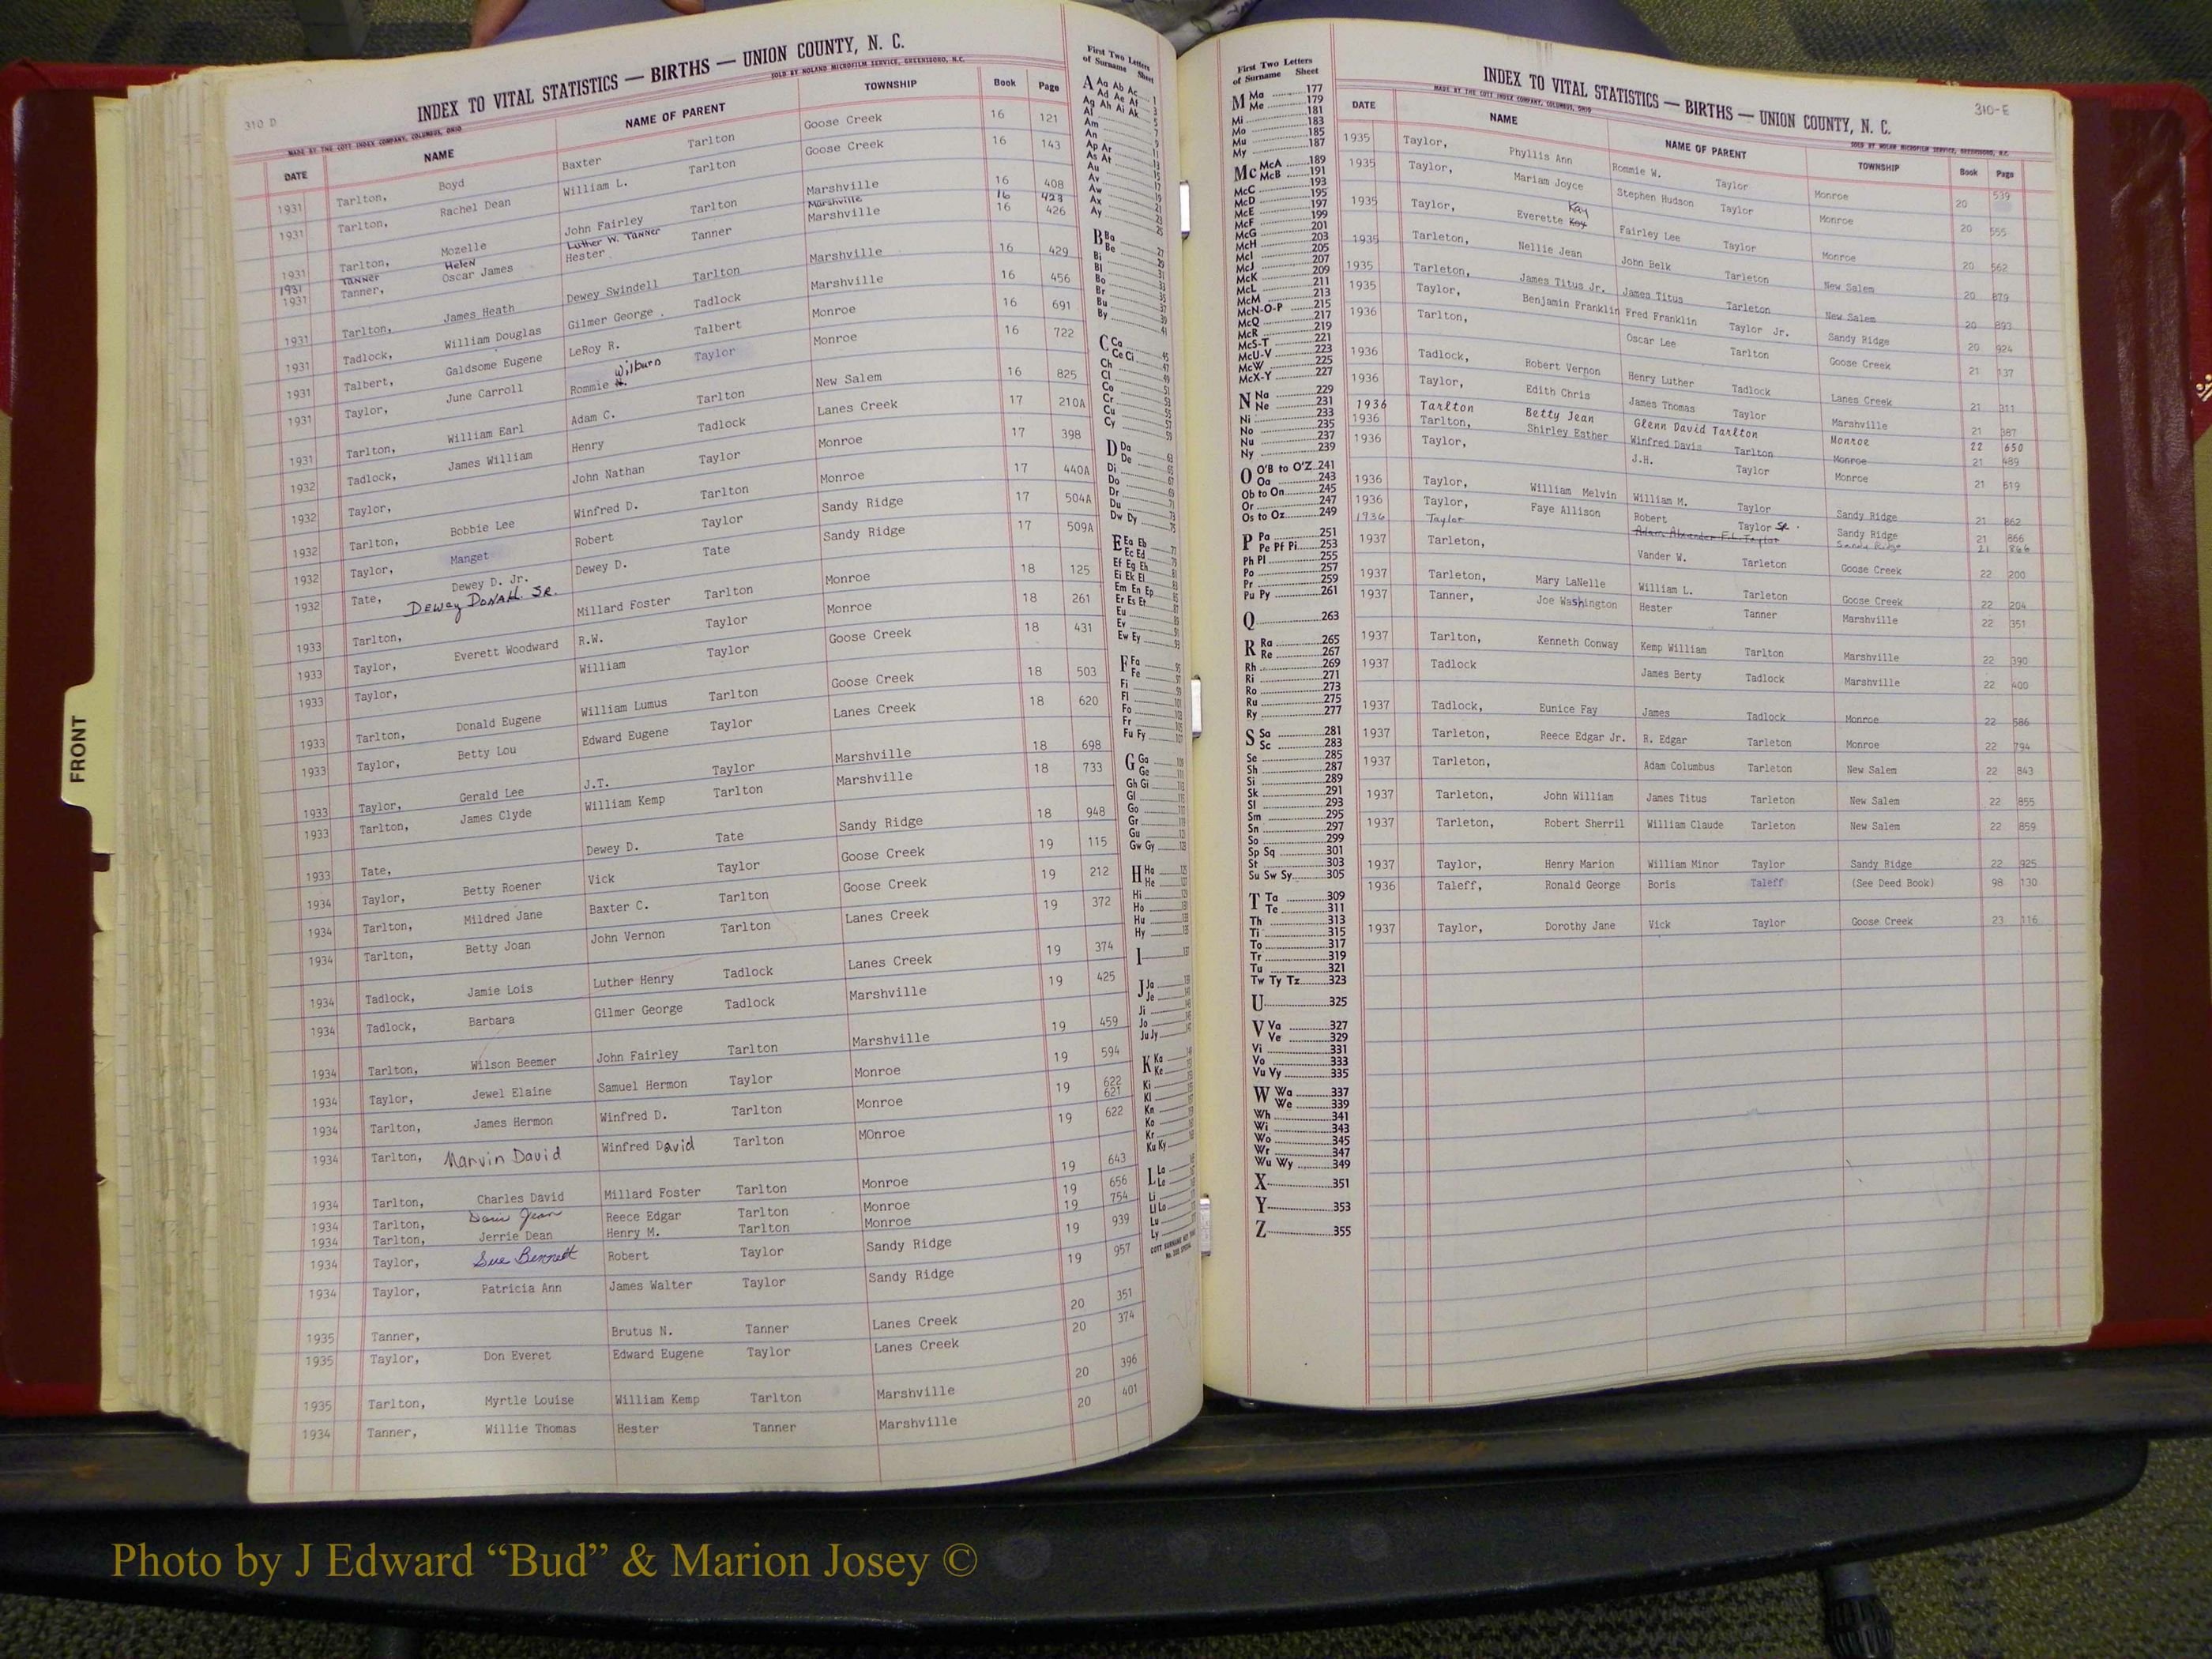 310 D
INDEX TO VITAL STATISTICS — BIRTHS — UNION COUNTY, N. C.
MADE BY THE COTT INDEX COMPANY, COLUMBUS, OHIO SOLD BY NOLAND MICROFILM SERVICE, GREENSBORO, N.C.
DATE NAME NAME OF PARENT TOWNSHIP Book Page
1931 Tarlton, Boyd Baxter Tarlton Goose Creek 16 121
1931 Tarlton, Rachel Dean William L. Tarlton Goose Creek 16 143
1931 Tarlton, Mozelle John Fairley Tarlton Marshville 16 408
1931 Tanner Helen Luther W. Tanner Marshville 16 423
1931 Tanner, Oscar James Hester Tanner Marshville 16 426
1931 Tarlton, James Heath Dewey Swindell Tarlton Marshville 16 429
1931 Tadlock, William Douglas Gilmer George Tadlock Marshville 16 456
1931 Talbert, Galdsome Eugene LeRoy R. Talbert Monroe 16 691
1931 Taylor, June Carroll Rommie Wilburn Taylor Monroe 16 722
1931 Tarlton, William Earl Adam C. Tarlton New Salem 16 825
1932 Tadlock, James William Henry Tadlock Lanes Creek 17 210A
1932 Taylor, John Nathan Taylor Monroe 17 398
1932 Tarlton, Bobbie Lee Winfred D. Tarlton Monroe 17 440A
1932 Taylor, Manget Robert Taylor Sandy Ridge 17 504A
1932 Tate, Dewey D. Jr. Dewey D. Tate Sandy Ridge 17 509A
Dewey Donah. Sr.
1933 Tarlton, Millard Foster Tarlton Monroe 18 125
1933 Taylor, Everett Woodward R.W. Taylor Monroe 18 261
1933 Taylor, William Taylor Goose Creek 18 431
1933 Tarlton, Donald Eugene William Lumus Tarlton Goose Creek 18 503
1933 Taylor, Betty Lou Edward Eugene Taylor Lanes Creek 18 620
1933 Taylor, Gerald Lee J.T. Taylor Marshville 18 698
1933 Tarlton, James Clyde William Kemp Tarlton Marshville 18 733
1933 Tate, Dewey D. Tate Sandy Ridge 18 948
1934 Taylor, Betty Roener Vick Taylor Goose Creek 19 115
1934 Tarlton, Mildred Jane Baxter C. Tarlton Goose Creek 19 212
1934 Tarlton, Betty Joan John Vernon Tarlton Lanes Creek 19 372
1934 Tadlock, Jamie Lois Luther Henry Tadlock Lanes Creek 19 374
1934 Tadlock, Barbara Gilmer George Tadlock Marshville 19 425
1934 Tarlton, Wilson Beemer John Fairley Tarlton Marshville 19 459
1934 Taylor, Jewel Elaine Samuel Hermon Taylor Monroe 19 594
1934 Tarlton, James Hermon Winfred D. Tarlton Monroe 19 622 621
1934 Tarlton, Marvin David Winfred David Tarlton MOnroe 19 622
1934 Tarlton, Charles David Millard Foster Tarlton Monroe 19 643
1934 Tarlton, Doris Jean Reece Edgar Tarlton Monroe 19 656
1934 Tarlton, Jerrie Dean Henry M. Tarlton Monroe 19 754
1934 Taylor, Sue Bennett Robert Taylor Sandy Ridge 19 939
1934 Taylor, Patricia Ann James Walter Taylor Sandy Ridge 19 957
1935 Tanner, Brutus N. Tanner Lanes Creek 20 351
1935 Taylor, Don Everet Edward Eugene Taylor Lanes Creek 20 374
1935 Tarlton, Myrtle Louise William Kemp Tarlton Marshville 20 396
1934 Tanner, Willie Thomas Hester Tanner Marshville 20 401
First Two Letters
of Surname Sheet
A Aa Ab Ac 1
Ad Ae Af 3
Ag Ah Ai Ak 5
Al 7
Am 9
An 11
Ap Ar 13
As At 15
Au 17
Av 19
Aw 21
Ax 23
Ay 25
B Ba 27
Be 29
Bi 31
Bl 33
Bo 35
Br 37
Bu 39
By 41
C Ca 45
Ce Ci 47
Ch 49
Cl 51
Co 53
Cr 55
Cu 57
Cy 59
D Da 63
De 65
Di 67
Do 69
Dr 71
Du 73
Dw Dy 75
E Ea Eb
Ec Ed
Ef Eg Eh
Ei Ek El
Em En Ep
Er Es Et
Eu
Ev
Ew Ey
F Fa
Fe
Fi
Fl
Fo
Fr
Fu Fy
G Ga
Ge
Gh Gi
Gl
Go
Gr
Gu
Gw Gy
H Ha
He
Hi
Ho
Hu
Hy
I
J Ja
Je
Ji
Jo
Ju Jy
K Ka
Ke
Ki
Kl
Kn
Ko
Kr
Ku Ky
L La
Le
Li
Ll Lo
Lu
Ly
First Two Letters
of Surname Sheet
M Ma 177
Me 179
Mi 181
Mo 183
Mu 185
My 187
Mc McA 189
McB 191
McC 193
McD 195
McE 197
McF 199
McG 201
McH 203
McI 205
McJ 207
McK 209
McL 211
McM 213
McN-O-P 215
McQ 217
McR 219
McS-T 221
McU-V 223
McW 225
McX-Y 227
N Na 229
Ne 231
Ni 233
No 235
Nu 237
Ny 239
O O'B to O'Z 241
Oa 243
Ob to On 245
Or 247
Os to Oz 249
P Pa 251
Pe Pf Pi 253
Ph Pl 255
Po 257
Pr 259
Pu Py 261
Q 263
R Ra 265
Re 267
Rh 269
Ri 271
Ro 273
Ru 275
Ry 277
S Sa 281
Sc 283
Se 285
Sh 287
Si 289
Sk 291
Sl 293
Sm 295
Sn 297
So 299
Sp Sq 301
St 303
Su Sw Sy 305
T Ta 309
Te 311
Th 313
Ti 315
To 317
Tr 319
Tu 321
Tw Ty Tz 323
U 325
V Va 327
Ve 329
Vi 331
Vo 333
Vu Vy 335
W Wa 337
We 339
Wh 341
Wi 343
Wo 345
Wr 347
Wu Wy 349
X 351
Y 353
Z 355
INDEX TO VITAL STATISTICS — BIRTHS — UNION COUNTY, N. C.
310-E
MADE BY THE COTT INDEX COMPANY, COLUMBUS, OHIO SOLD BY NOLAN MICROFILM SERVICE, GREENSBORO, N.C.
DATE NAME NAME OF PARENT TOWNSHIP Book Page
1935 Taylor, Phyllis Ann Rommie W. Taylor Monroe 20 539
1935 Taylor, Mariam Joyce Stephen Hudson Taylor Monroe 20 555
1935 Taylor, Everette Koy Kay Fairley Lee Taylor Monroe 20 562
1935 Tarleton, Nellie Jean John Belk Tarleton New Salem 20 879
1935 Tarleton, James Titus Jr. James Titus Tarleton New Salem 20 893
1935 Taylor, Benjamin Franklin Fred Franklin Taylor Jr. Sandy Ridge 20 924
1936 Tarlton, Oscar Lee Tarlton Goose Creek 21 137
1936 Tadlock, Robert Vernon Henry Luther Tadlock Lanes Creek 21 311
1936 Taylor, Edith Chris James Thomas Taylor Marshville 21 387
1936 Tarlton Betty Jean Glenn David Tarlton Monroe 22 650
1936 Tarlton, Shirley Esther Winfred Davis Tarlton Monroe 21 489
1936 Taylor, J.H. Taylor Monroe 21 619
1936 Taylor, William Melvin William M. Taylor Sandy Ridge 21 862
1936 Taylor, Faye Allison Robert Taylor Sr. Sandy Ridge 21 866
1936 Taylor Adam Alexander F.L. Taylor Sandy Ridge 21 866
1937 Tarleton, Vander W. Tarleton Goose Creek 22 200
1937 Tarleton, Mary LaNelle William L. Tarleton Goose Creek 22 204
1937 Tanner, Joe Washington Hester Tanner Marshville 22 351
1937 Tarlton, Kenneth Conway Kemp William Tarlton Marshville 22 390
1937 Tadlock James Berty Tadlock Marshville 22 400
1937 Tadlock, Eunice Fay James Tadlock Monroe 22 586
1937 Tarleton, Reece Edgar Jr. R. Edgar Tarleton Monroe 22 794
1937 Tarleton, Adam Columbus Tarleton New Salem 22 843
1937 Tarleton, John William James Titus Tarleton New Salem 22 855
1937 Tarleton, Robert Sherril William Claude Tarleton New Salem 22 859
1937 Taylor, Henry Marion William Minor Taylor Sandy Ridge 22 925
1936 Taleff, Ronald George Boris Taleff (See Deed Book) 98 130
1937 Taylor, Dorothy Jane Vick Taylor Goose Creek 23 116
FRONT
Photo by J Edward “Bud” & Marion Josey ©